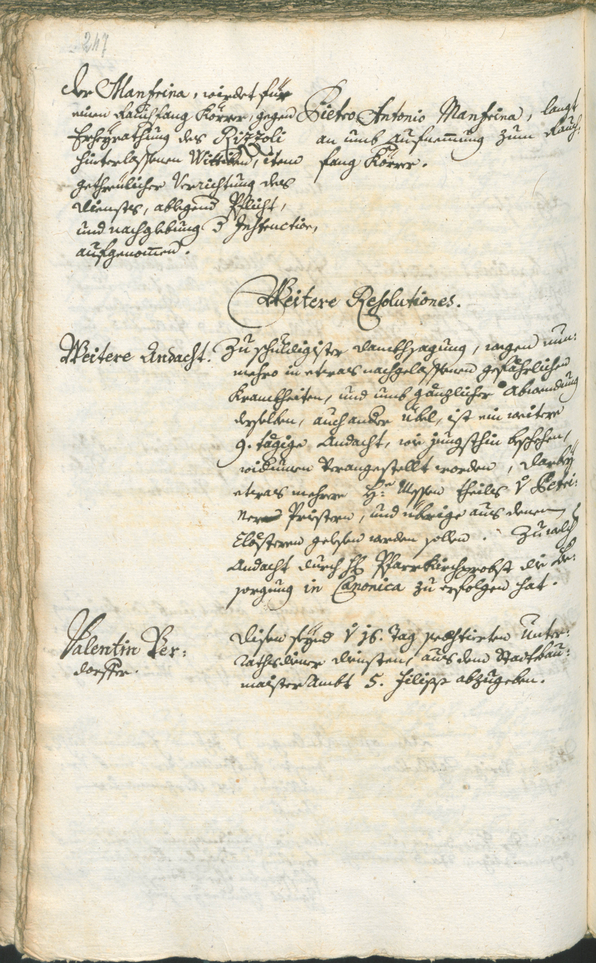 247
der Manfrina, wirdet für
einen Rauchfang Körer, gegen
Ehelrathung des Rizzoli
hinterlassenen Wittiben, item
getheulicher Verrichtung des
Diensts, ablegend Pflicht,
und nachgebung d Instruction,
aufgenommen.
Pietro Antonio Manfrina, langt
an umb aufnemung zum Rauch-
fang Körer.
Weitere Resolutiones.
Weitere Andacht.
Zu schuldigister Dankhsagung, wegen nun-
mehro in etwas nachgelassenen gefährlichen
Krankheiten, und umb gänzlicher Abwendung
derselben, auch ander übel, ist ein weitere
9. tägige Andacht, wie jüngsthin beschehen,
widumen Verangestellt worden, darbey
etwas mehrere Hl: Messen theils V
Priestern, und übrige aus denen
Clösteren gelesen werden sollen. Zu welch
Andacht durch H Pfarrkirchprobst die Be-
sorgung in Canonica zu erfolgen hat.
Valentin Per-
dorffer.
Disem seynd V 16. Tag prästirten Unter-
Rathsdiener diensten, aus dem Stattbau-
maister Ambt 5. abzugeben.